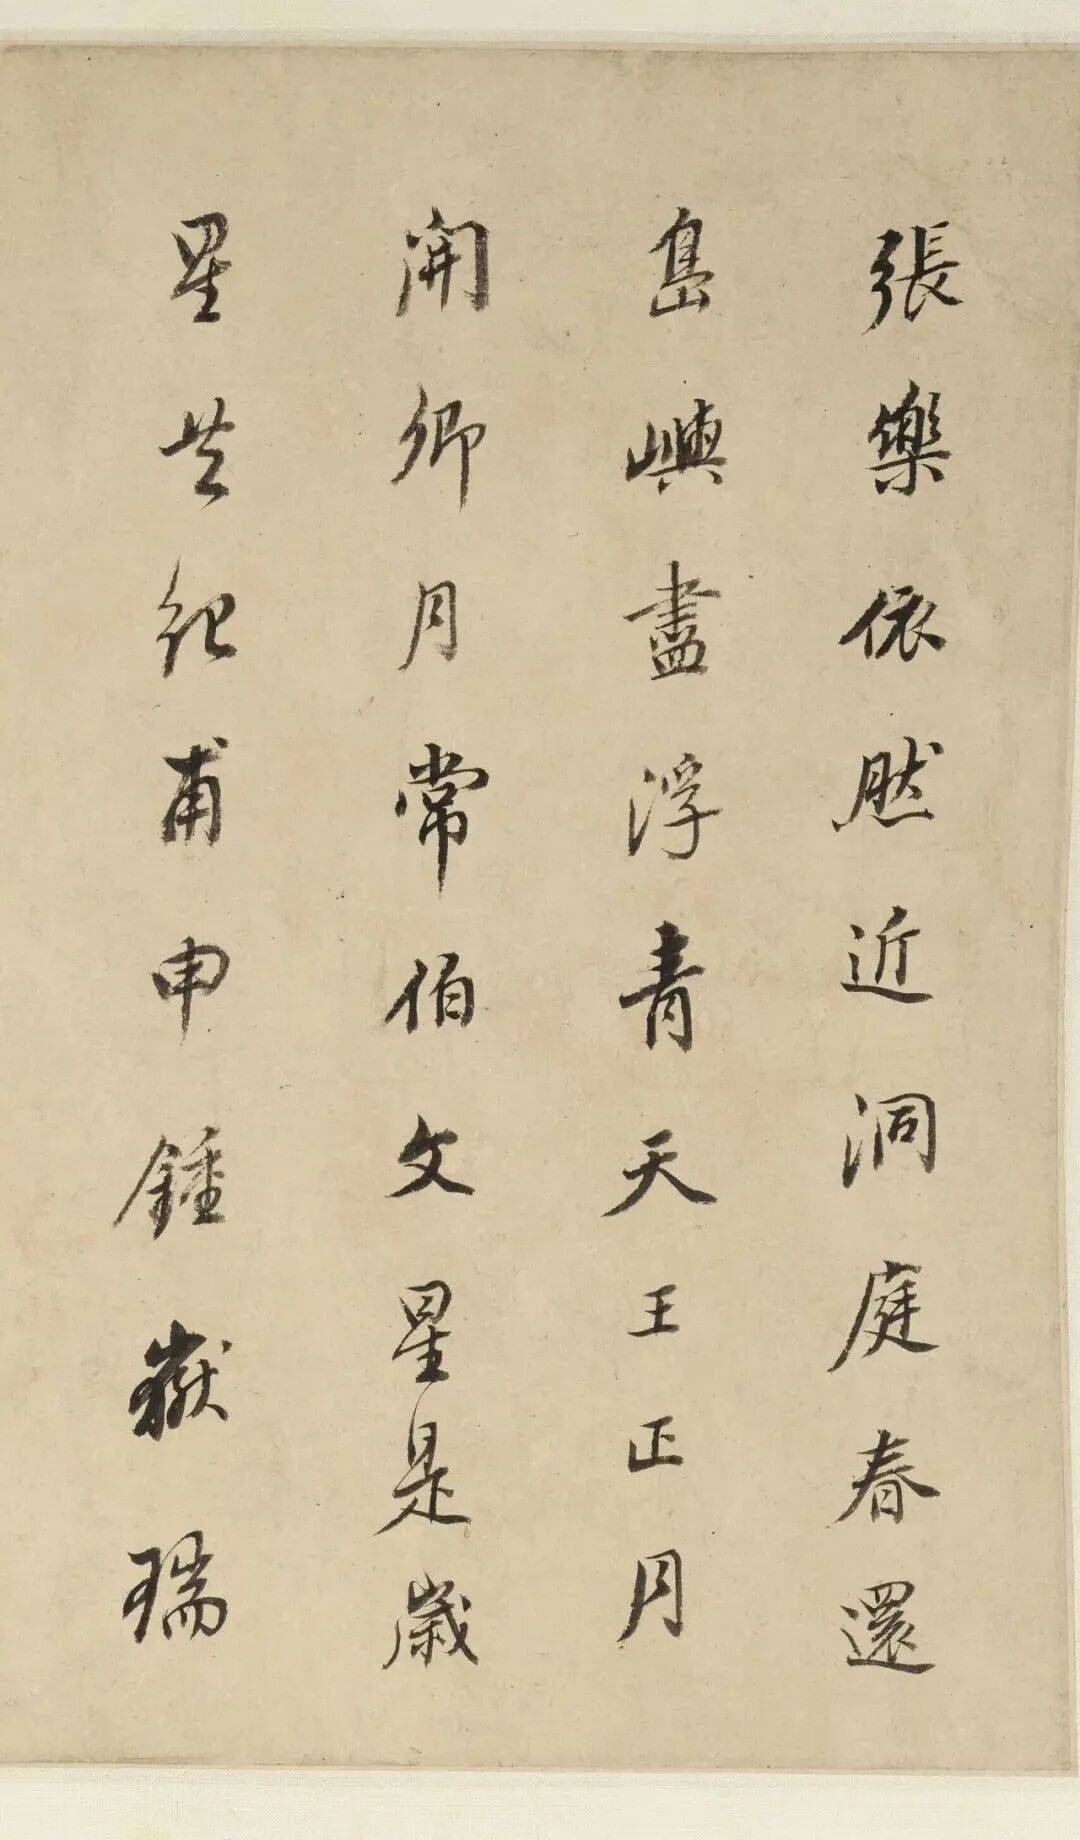 張樂依然近洞庭春還
島嶼盡浮青天王正月
開卿月常伯文星是歲
星共祀甫申鍾嶽瑞